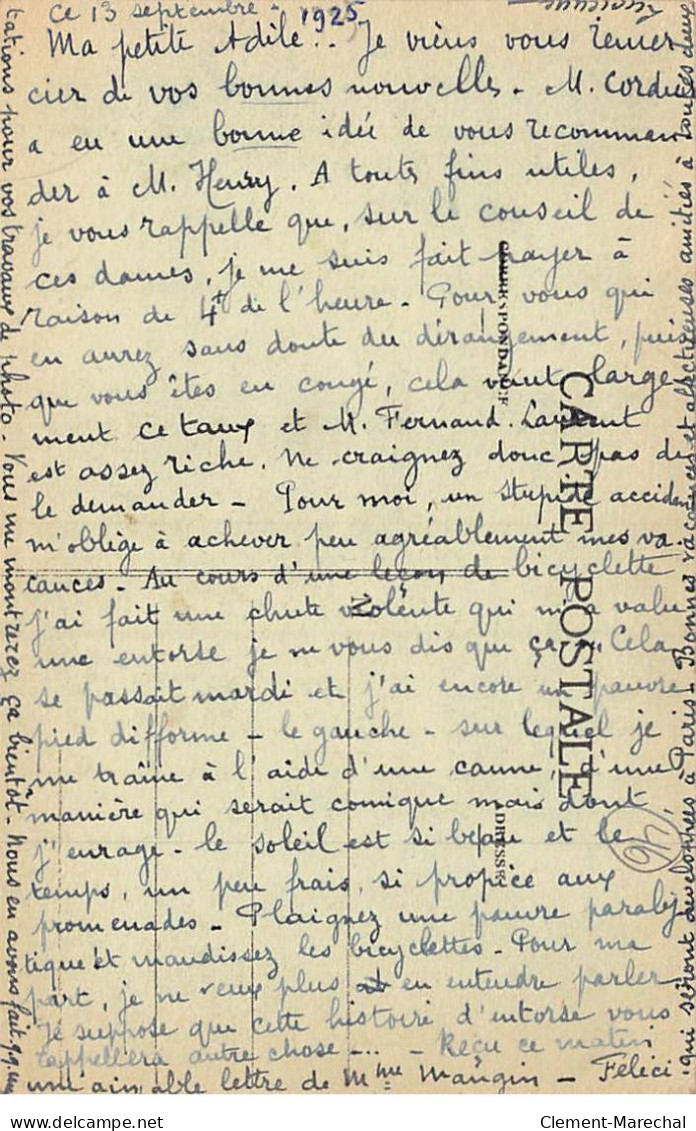 Ce 13 septembre - 1925
Ma petite Adile.. Je viens vous remer
cier de vos bonnes nouvelles. M. Cordier
a eu une bonne idée de vous recomman
der à M. Henry. A toutes fins utiles,
je vous rappelle que, sur le conseil de
ces dames, je me suis fait payer à
raison de 4f de l'heure. Pour vous qui
en aurez sans doute du dérangement, puis
que vous êtes en congé, cela vaut large-
ment ce taux et M. Fernand-Laurent
est assez riche. Ne craignez donc pas de
le demander - Pour moi, un stupide accident
m'oblige à achever peu agréablement mes va
cances - Au cours d'une leçon de bicyclette
j'ai fait une chute violente qui m'a valu
une entorse je ne vous dis que ça.. Cela
se passait mardi et j'ai encore un pauvre
pied difforme - le gauche - sur lequel je
me traîne à l'aide d'une canne, d'une
manière qui serait comique mais dont
j'enrage - le soleil est si beau et le
temps, un peu frais, si propice aux
promenades - Plaignez une pauvre paraly
tique et maudissez les bicyclettes - Pour ma
part, je ne veux plus en entendre parler
Je suppose que cette histoire d'entorse vous
rappellera autre chose ... - Reçu ce matin
une aimable lettre de Mme Maugin - Félici
tations pour vos travaux de photo - Vous me montrerez ça bientôt - Nous en avons fait qq.
qui seront développées à Paris. Bonnes vacances et affectueuses amitiés à toutes deux
CARTE POSTALE
CORRESPONDANCE
ADRESSE
46
Clement-Marechal